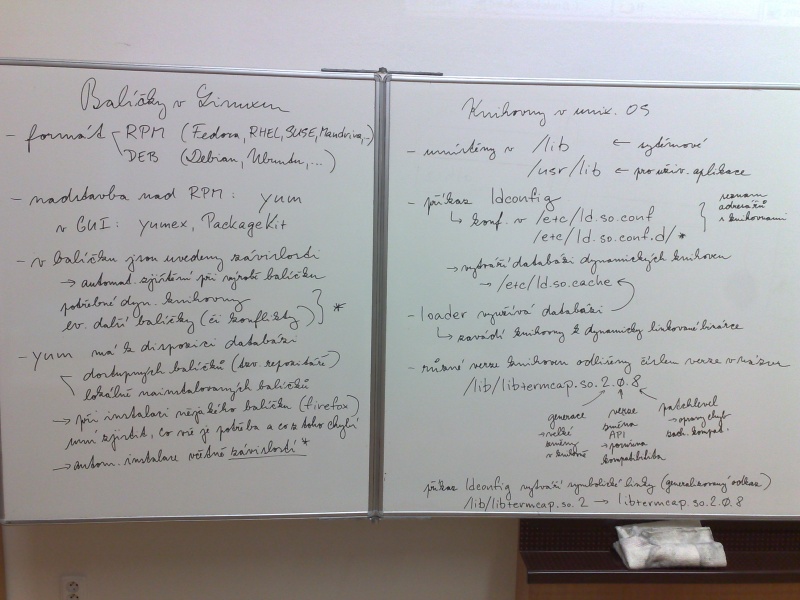 Balíčky v Linuxu
- formát RPM (Fedora, RHEL, SUSE, Mandriva,..)
DEB (Debian, Ubuntu, ...)
- nadstavba nad RPM: yum
v GUI: yumex, PackageKit
- v balíčku jsou uvedeny závislosti
→ automat. zjištění při výrobě balíčku
potřebné dyn. knihovny
ev. další balíčky (či konflikty) } *
- yum má k dispozici databázi
dostupných balíčků (tzv. repozitáře)
lokálně nainstalovaných balíčků
→ při instalaci nějakého balíčku (firefox)
umí zjistit, co vše je potřeba a co z toho chybí
→ autom. instalace včetně závislostí *
Knihovny v unix. OS
- umístěny v /lib ← systémové
/usr/lib ← pro uživ. aplikace
- příkaz ldconfig
↳ konf. v /etc/ld.so.conf
/etc/ld.so.conf.d/*
} seznam
adresářů
s knihovnami
→ vytváří databázi dynamických knihoven
→ /etc/ld.so.cache
- loader využívá databázi
↳ zavádí knihovny k dynamicky linkované binárce
- různé verze knihoven odlišeny číslem verze v názvu
/lib/libtermcap.so.2.0.8
generace
→ velké
změny
v knihovně
verze
změna
API
→ povinná
kompatibilita
patchlevel
→ opravy chyb
zach. kompat.
příkaz ldconfig vytváří symbolické linky (generalizovaný odkaz)
/lib/libtermcap.so.2 → libtermcap.so.2.0.8